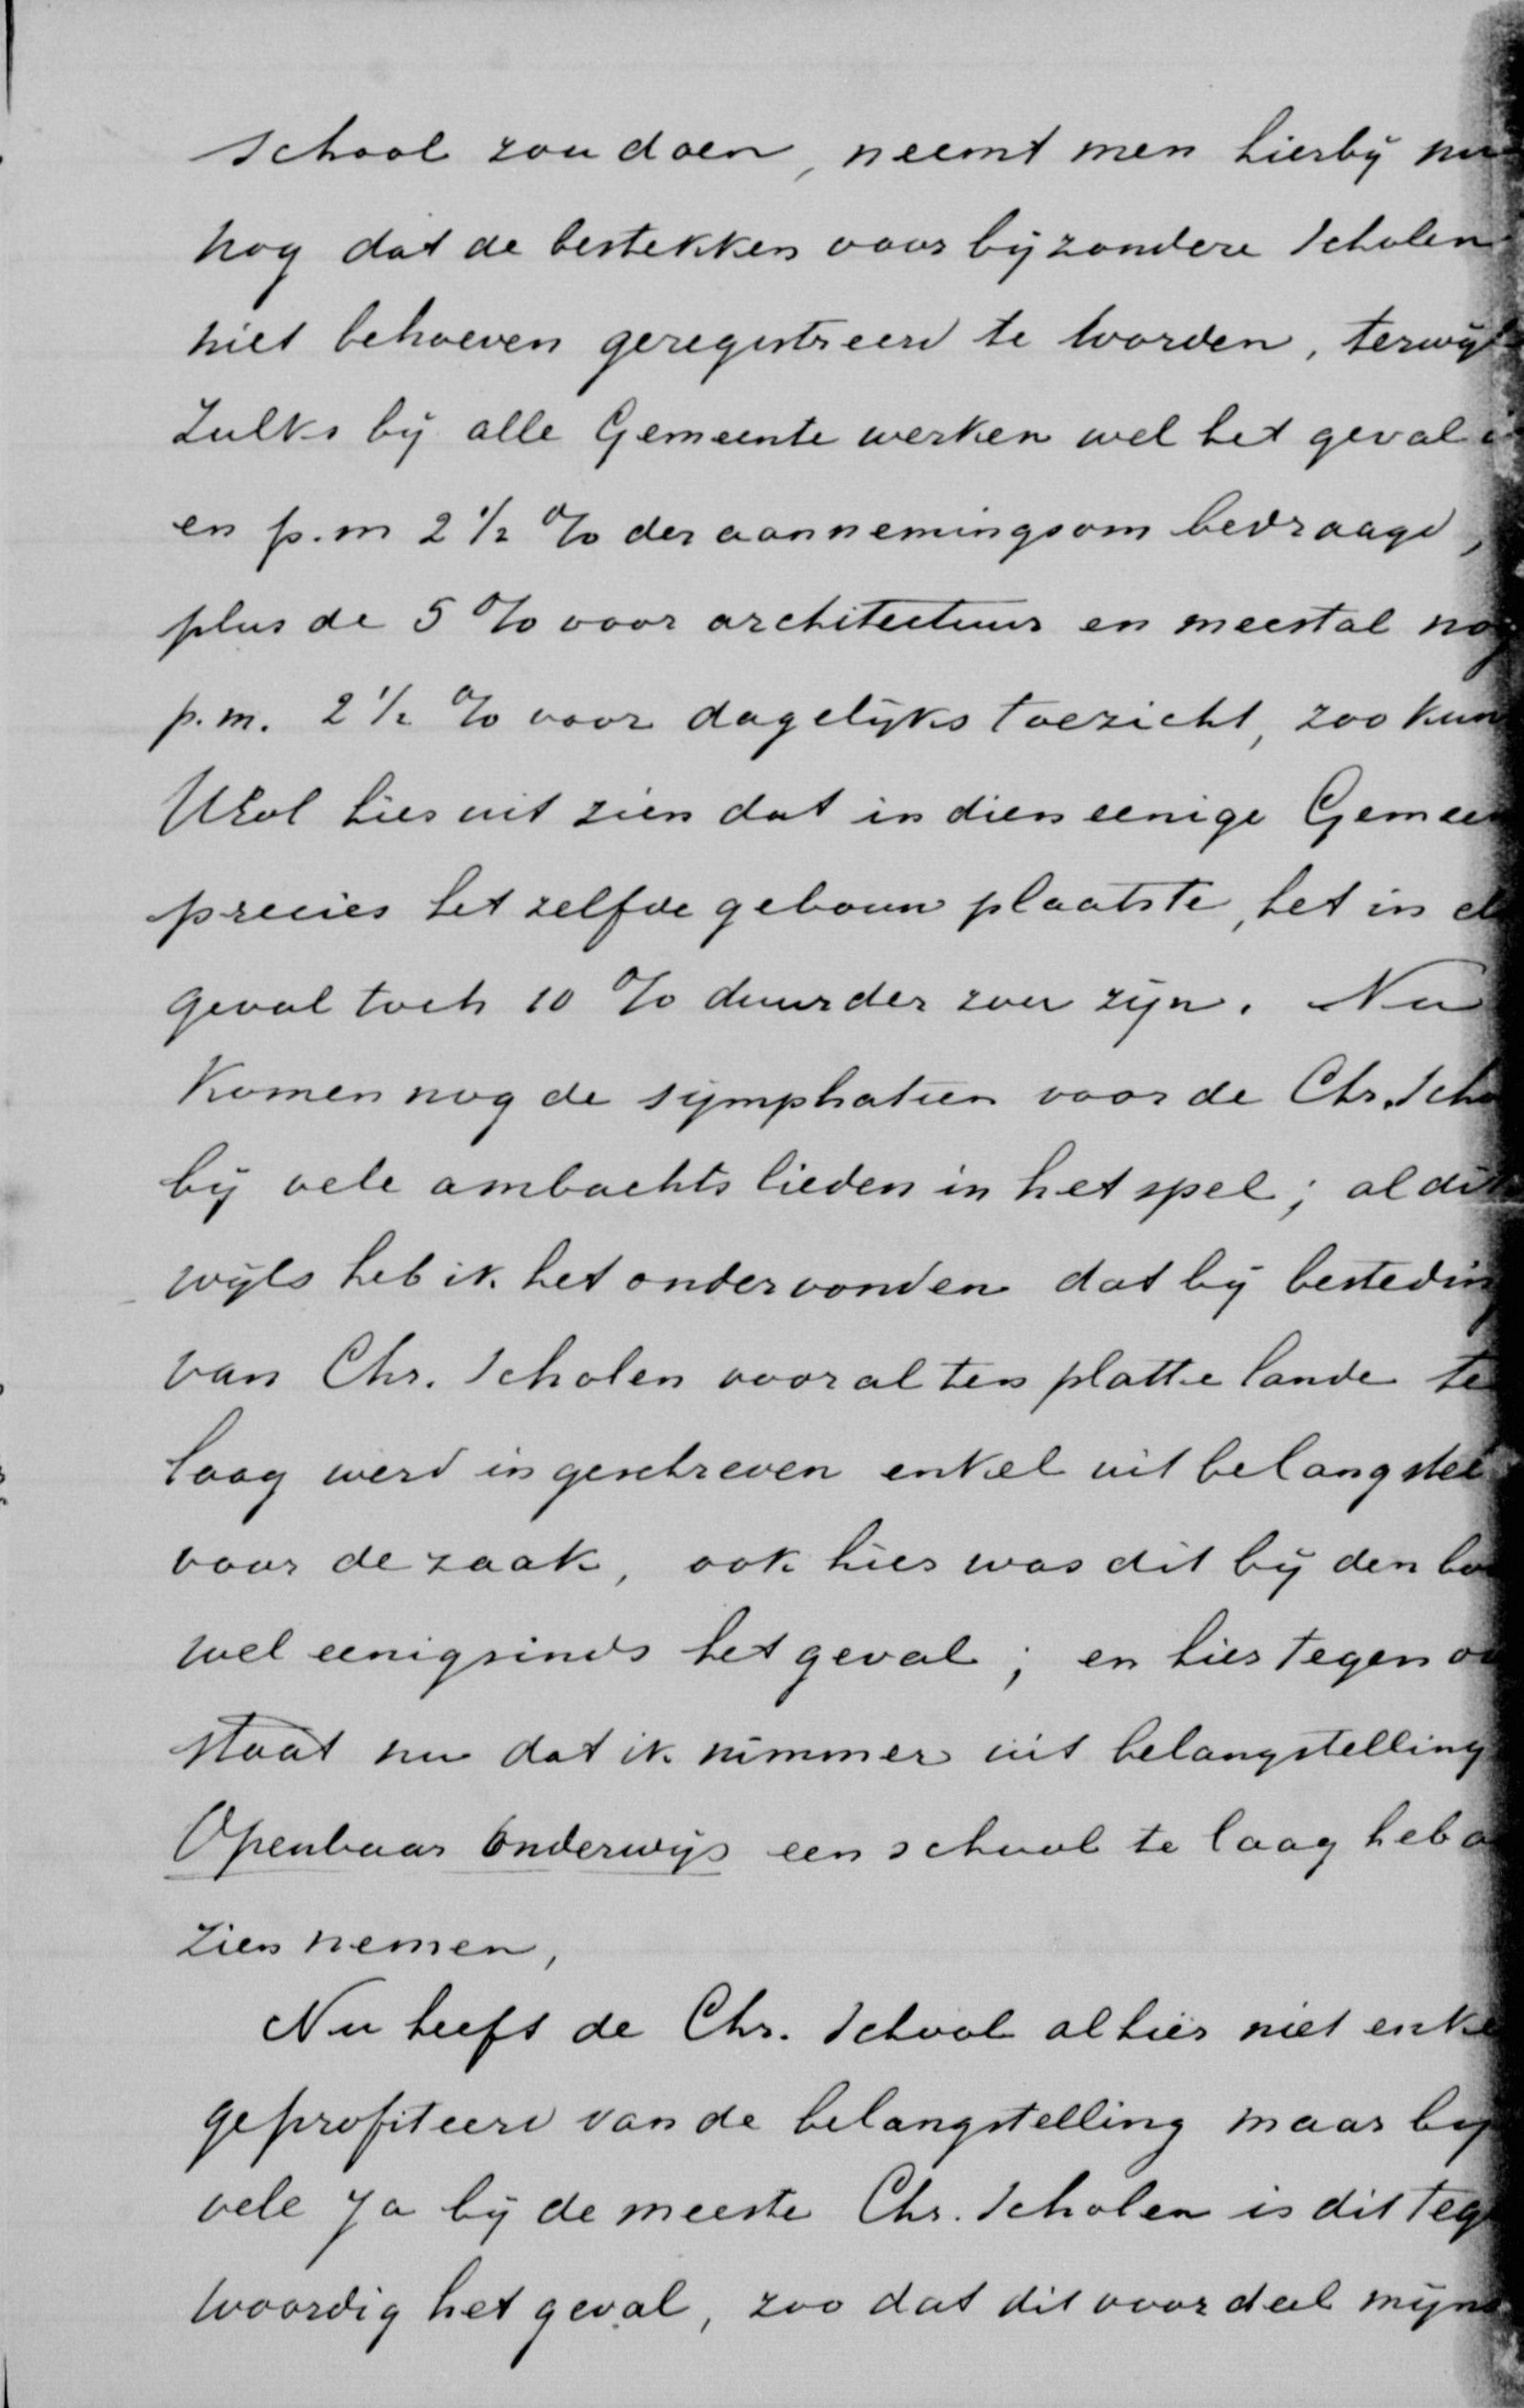 school zou doen, neemt men hierbij nu
nog dat de bestekken voor bijzondere Scholen
niet behoeven geregistreerd te worden, terwijl
Zulks bij alle Gemeente werken wel het geval
en p.m 2 1/2 % der aannemingsom bedraagd,
plus de 5 % voor architectuur en meestal nog
p.m. 2 1/2 % voor dagelijks toezicht, zoo kun
UEd hieruit zien dat indien eenige Gemeen
precies het zelfde gebouw plaatste, het in
geval toch 10 % duurder zou zijn. Nu
Komen nog de symphatien voor de Chr. Scho
bij vele ambachts lieden in het spel; al dik
wijls heb ik het ondervonden dat bij bestedin
van Chr. Scholen vooral ten platte lande te
laag werd ingeschreven enkel uit belangstel
voor de zaak, ook hier was dit bij den bo
wel eenigsinds het geval; en hier tegen o
staat nu dat ik nimmer uit belangstelling
Openbaar Onderwijs een school te laag heb a
zien nemen,
Nu heeft de Chr. School alhier niet enke
geprofiteerd van de belangstelling maar bij
vele Ja bij de meeste Chr. Scholen is dit teg
woordig het geval, zoo dat dit voordeel mijns